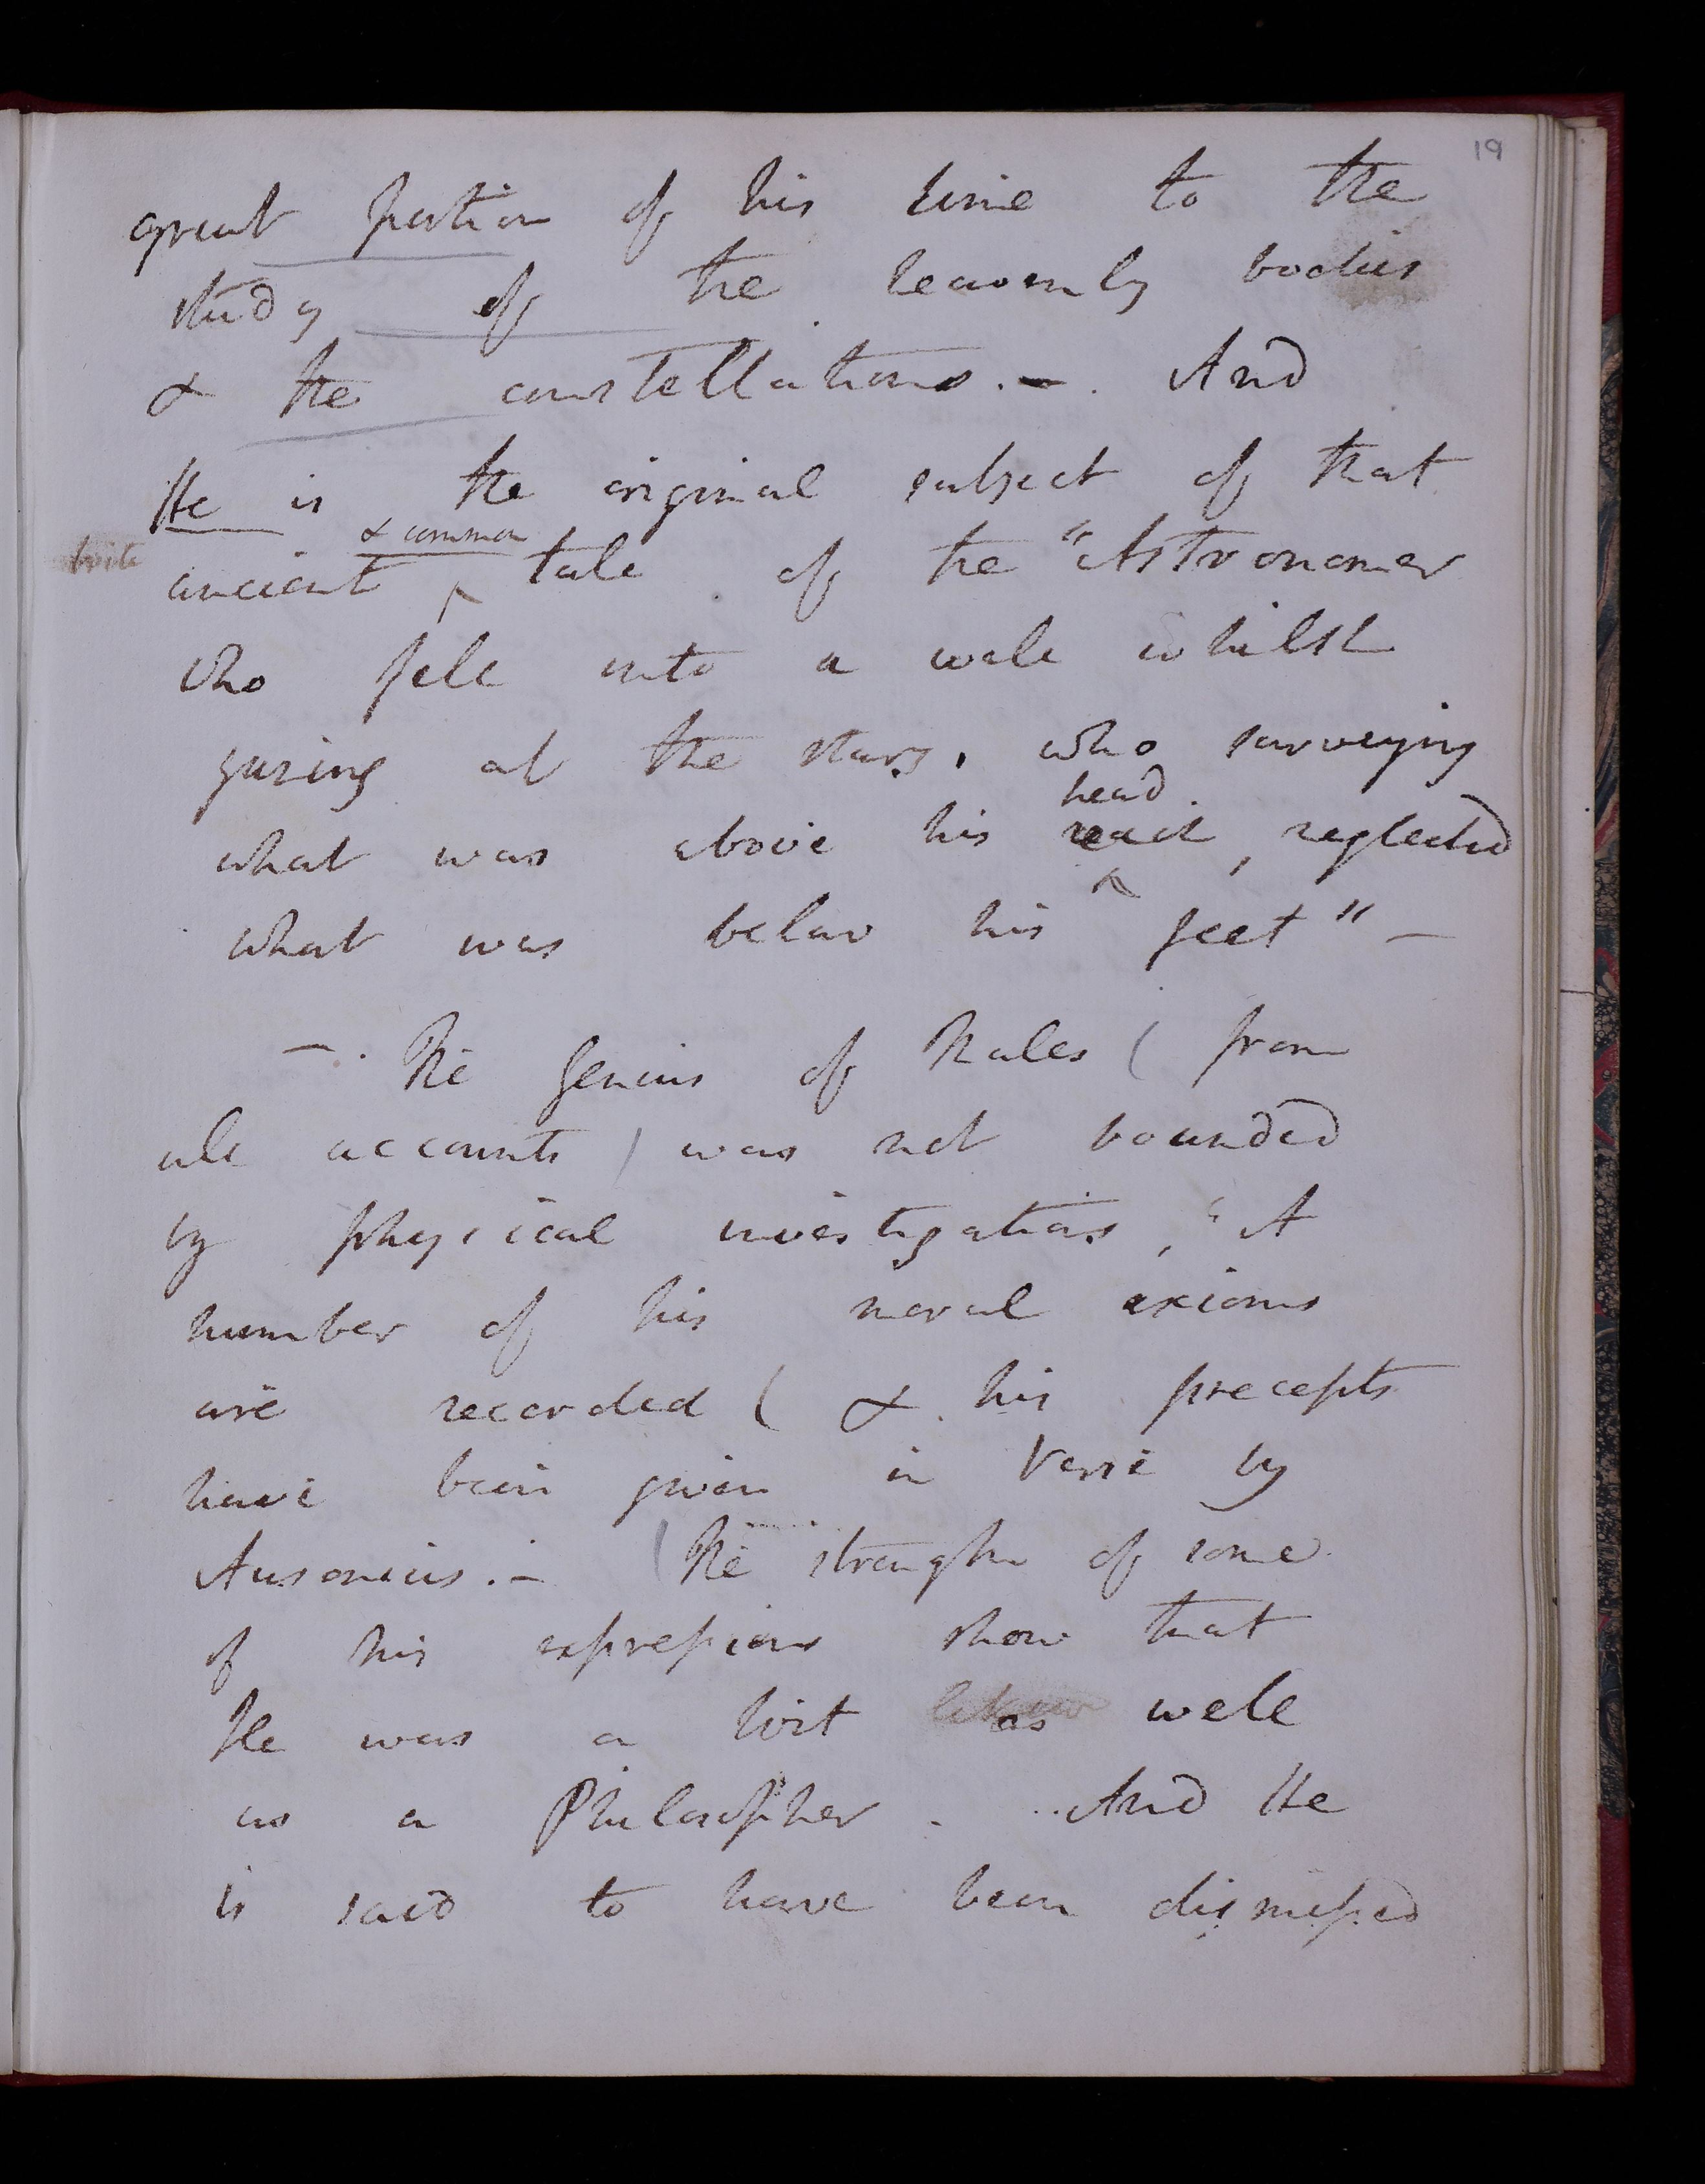 19
great portion of his time to the
study of the heavenly bodies
& the constellations. - . And
He is the original subject of that
& common
ancient ^ tale of the "Astronomer
who fell into a well whilst
gazing at the stars, who surveying
head
what was above his neglected
what was below his ^ feet" -
- . The Genius of Thales ( from
all accounts ) was not bounded
by physical investigations, "A
number of his moral axioms
are recorded ( & his precepts
have been given in Verse by
Ausonius. - The strength of some
of his expressions show that
He was a Wit as well
as a Philosopher. And He
is said to have been dismissed